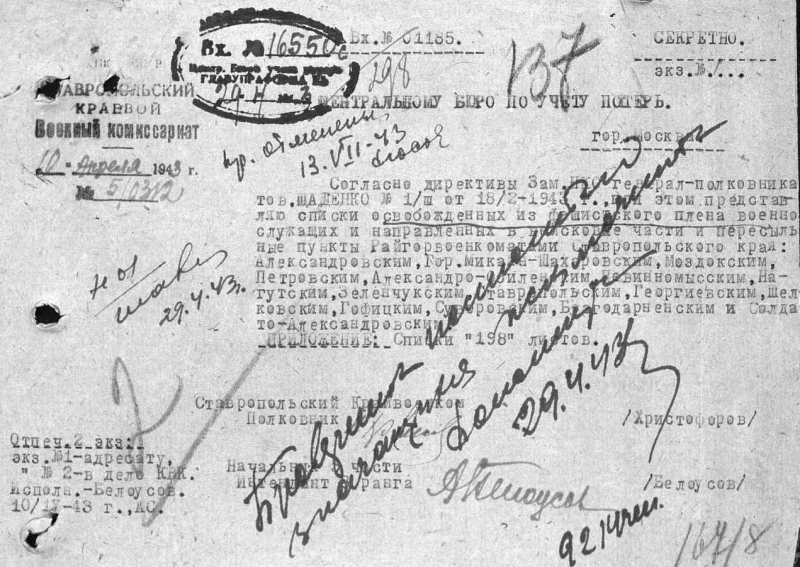 Вх. № 16550с
Центр. Бюро учета потерь
29 4 1943
Вх.№ 01185.
298
137
СЕКРЕТНО.
экз.№1...
СТАВРОПОЛЬСКИЙ
КРАЕВОЙ
Военный комиссариат
10 - Апреля 1943 г.
№ 5/0312
ЦЕНТРАЛЬНОМУ БЮРО ПО УЧЕТУ ПОТЕРЬ.
гор. Москва
пр. отменены,
13.VII-43
Согласно директивы Зам.НКО генерал-полковника
тов.ЩАДЕНКО № 1/ш от 18/2-1943 г., при этом представ-
ляю списки освобожденных из фашистского плена военно
служащих и направленных в войсковые части и пересыль
ные пункты Райгорвоенкоматами Ставропольского края:
Александровским,Гор.Микаян-Шахаровским,Моздокским,
Петровским,Александро-Обиленским,Невинномысским,На-
гутским,Зеленчукским,Ставропольским,Георгиевским,Шел
ковским,Гофицким,Суворовским,Благодарненским и Солда
то-Александровским
ПРИЛОЖЕНИЕ: Списки "198" листов.
29.4.43г.
29.4.43
Ставропольский Крайвоенком
Полковник
/Христофоров/
Отпеч.2 экз:
экз.№1-адресату,
" № 2-в дело КВК.
Исполн.-Белоусов.
10/IV-43 г.,АС.
Начальник части
Интендант ранга
АБелоусов
/Белоусов/
9214чел.
167/8